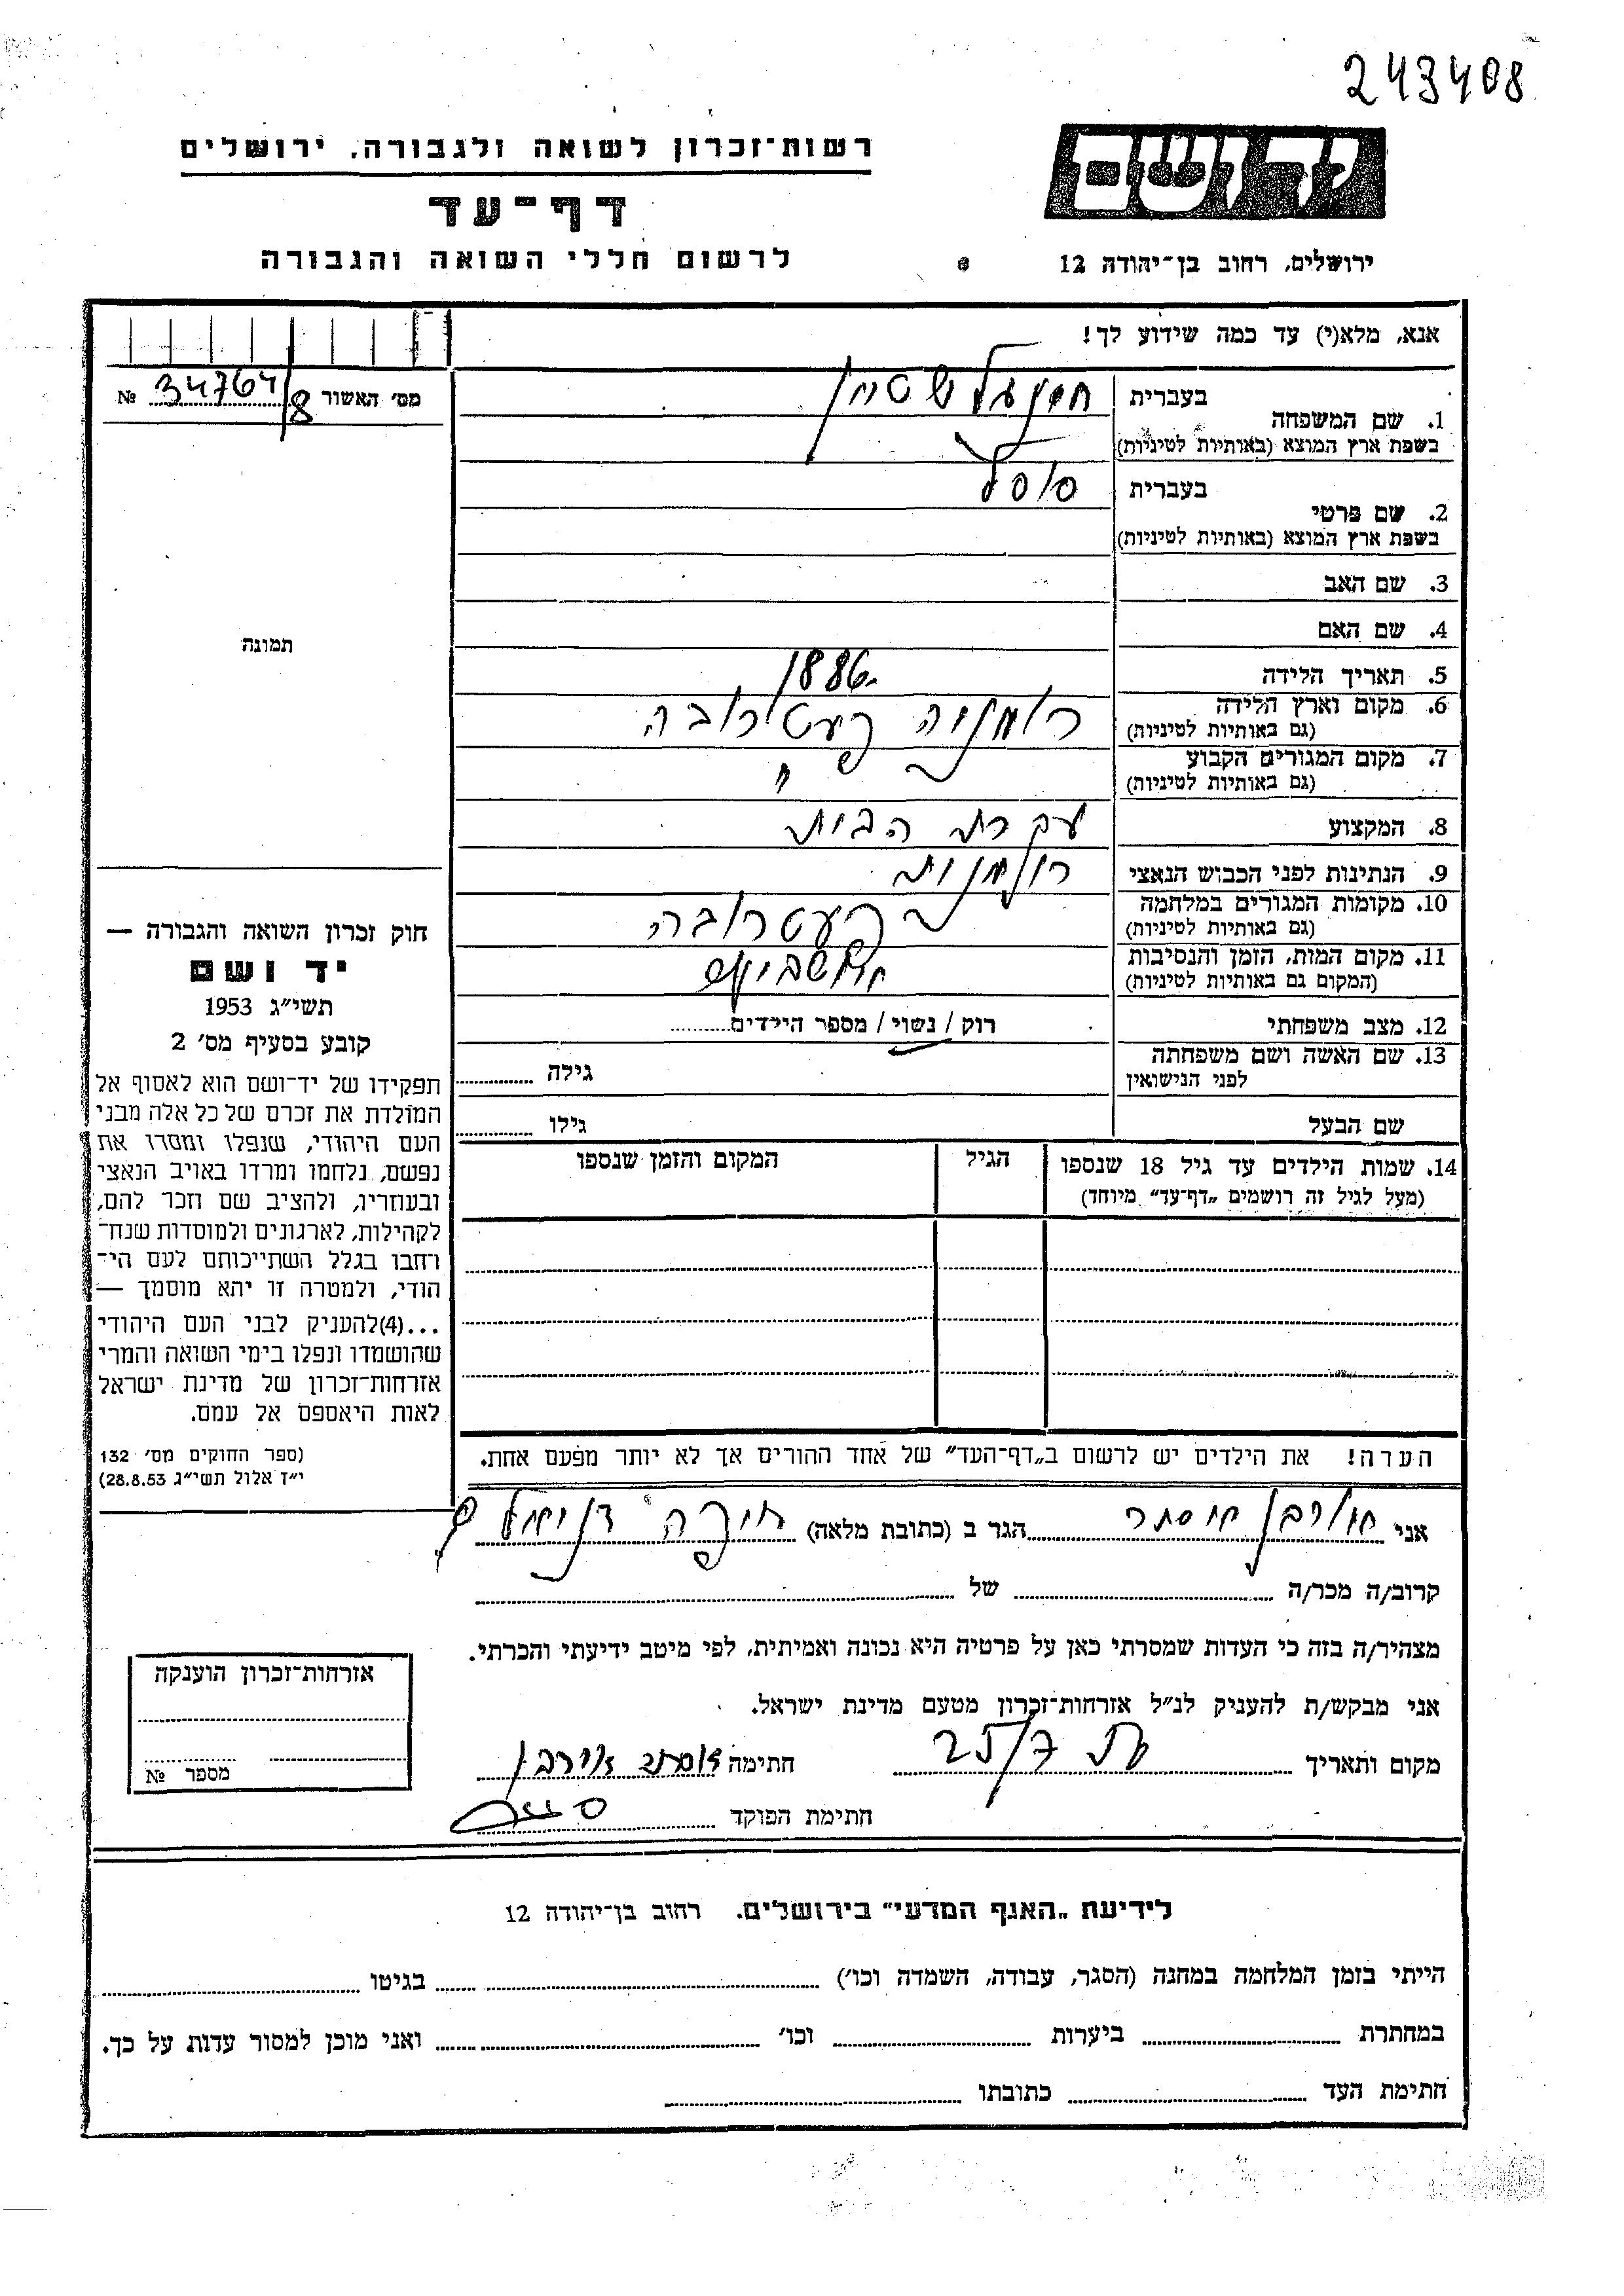 243408
ידושם
רשות־זכרון לשואה ולגבורה, ירושלים
דף־עד
לרשום חללי השואה והגבורה
ירושלים, רחוב בן־יהודה 12
אנא, מלא(י) עד כמה שידוע לך!
מס׳ האשור 34764/8 №
1. שם המשפחה
בעברית
בשפת ארץ המוצא (באותיות לטיניות)
2. שם פרטי
בעברית
בשפת ארץ המוצא (באותיות לטיניות)
3. שם האב
4. שם האם
5. תאריך הלידה 1886
6. מקום וארץ הלידה
(גם באותיות לטיניות)
7. מקום המגורים הקבוע "
(גם באותיות לטיניות)
8. המקצוע עקרת הבית
9. הנתינות לפני הכבוש הנאצי
10. מקומות המגורים במלחמה
(גם באותיות לטיניות)
11. מקום המות, הזמן והנסיבות
(המקום גם באותיות לטיניות)
12. מצב משפחתי רוק / נשוי / מספר הילדים
13. שם האשה ושם משפחתה
לפני הנישואין
גילה
שם הבעל גילו
14. שמות הילדים עד גיל 18 שנספו
(מעל לגיל זה רושמים „דף־עד״ מיוחד)
הגיל
המקום והזמן שנספו
הערה! את הילדים יש לרשום ב„דף־העד״ של אחד ההורים אך לא יותר מפעם אחת.
תמונה
חוק זכרון השואה והגבורה —
יד ושם
תשי״ג 1953
קובע בסעיף מס׳ 2
תפקידו של יד־ושם הוא לאסוף אל
המולדת את זכרם של כל אלה מבני
העם היהודי, שנפלו ומסרו את
נפשם, נלחמו ומרדו באויב הנאצי
ובעוזריו, ולהציב שם וזכר להם,
לקהילות, לארגונים ולמוסדות שנח־
רחבו בגלל השתייכותם לעם הי־
הודי, ולמטרה זו יהא מוסמך —
...(4)להעניק לבני העם היהודי
שהושמדו ונפלו בימי השואה והמרי
אזרחות־זכרון של מדינת ישראל
לאות היאספם אל עמם.
(ספר החוקים מס׳ 132
י״ד אלול תשי״ג 28.8.53)
אני אורבן אסתר הגר ב (כתובת מלאה) חיפה
קרוב/ה מכר/ה של
מצהיר/ה בזה כי העדות שמסרתי כאן על פרטיה היא נכונה ואמיתית, לפי מיטב ידיעתי והכרתי.
אני מבקש/ת להעניק לנ״ל אזרחות־זכרון מטעם מדינת ישראל.
מקום ותאריך 25/7 חתימה אסתר אורבן
חתימת הפוקד
אזרחות־זכרון הוענקה
מספר №
לידיעת „האגף המדעי״ בירושלים, רחוב בן־יהודה 12
הייתי בזמן המלחמה במחנה (הסגר, עבודה, השמדה וכו׳) בגיטו
במחתרת ביערות וכו׳ ואני מוכן למסור עדות על כך.
חתימת העד כתובתו